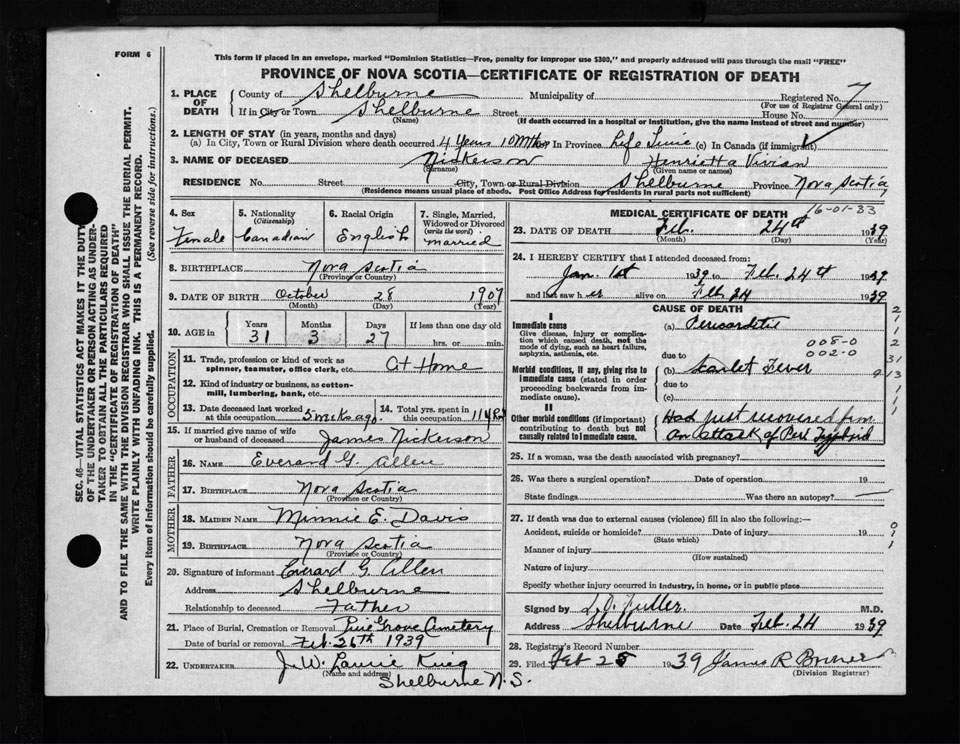 FORM 6
This form if placed in an envelope, marked "Dominion Statistics—Free, penalty for improper use $300," and properly addressed will pass through the mail "FREE"
PROVINCE OF NOVA SCOTIA—CERTIFICATE OF REGISTRATION OF DEATH
SEC. 46—VITAL STATISTICS ACT MAKES IT THE DUTY
OF THE UNDERTAKER OR PERSON ACTING AS UNDER-
TAKER TO OBTAIN ALL THE PARTICULARS REQUIRED
IN THE "CERTIFICATE OF REGISTRATION OF DEATH"
AND TO FILE THE SAME WITH THE DIVISION REGISTRAR WHO SHALL ISSUE THE BURIAL PERMIT.
WRITE PLAINLY WITH UNFADING INK. THIS IS A PERMANENT RECORD.
Every item of information should be carefully supplied. (See reverse side for instructions.)
1. PLACE OF DEATH
County of Shelburne Municipality of Registered No. 7
(For use of Registrar General only)
If in City or Town Shelburne Street House No.
(Name) (If death occurred in a hospital or institution, give the name instead of street and number)
2. LENGTH OF STAY (in years, months and days)
(a) In City, Town or Rural Division where death occurred 4 Years 10 Mths In Province Life Time (c) In Canada (if immigrant)
3. NAME OF DECEASED Nickerson Henrietta Vivian
(Surname) (Given name or names)
RESIDENCE No. Street City, Town or Rural Division Shelburne Province Nova Scotia
(Residence means usual place of abode. Post Office Address for residents in rural parts not sufficient)
4. Sex Female
5. Nationality (Citizenship) Canadian
6. Racial Origin English
7. Single, Married, Widowed or Divorced (write the word) married
8. BIRTHPLACE Nova Scotia
(Province or Country)
9. DATE OF BIRTH October 28 1907
(Month) (Day) (Year)
10. AGE in Years 31 Months 3 Days 27 If less than one day old hrs. or min.
OCCUPATION
11. Trade, profession or kind of work as spinner, teamster, office clerk, etc. At Home
12. Kind of industry or business, as cotton-mill, lumbering, bank, etc.
13. Date deceased last worked at this occupation 5 wks ago
14. Total yrs. spent in this occupation 11 yrs
15. If married give name of wife or husband of deceased James Nickerson
FATHER
16. NAME Everard G. Allen
17. BIRTHPLACE Nova Scotia
(Province or Country)
MOTHER
18. MAIDEN NAME Minnie E. Davis
19. BIRTHPLACE Nova Scotia
(Province or Country)
20. Signature of informant Everard G. Allen
Address Shelburne
Relationship to deceased Father
21. Place of Burial, Cremation or Removal Pine Grove Cemetery
Date of burial or removal Feb. 26th 1939
22. UNDERTAKER J. W. Laurie King
(Name and address)
Shelburne N.S.
MEDICAL CERTIFICATE OF DEATH 16-01-33
23. DATE OF DEATH Feb. 24th 1939
(Month) (Day) (Year)
24. I HEREBY CERTIFY that I attended deceased from:
Jan. 1st 1939 to Feb. 24th 1939
and last saw her alive on Feb. 24 1939
CAUSE OF DEATH
I
Immediate cause
Give disease, injury or complication which caused death, not the mode of dying, such as heart failure, asphyxia, asthenia, etc.
(a) Pericarditis
008-0
due to 002-0
Morbid conditions, if any, giving rise to immediate cause (stated in order proceeding backwards from immediate cause).
(b) Scarlet Fever
due to
(c)
II
Other morbid conditions (if important) contributing to death but not causally related to immediate cause.
Had just recovered from
an attack of Para Typhoid
25. If a woman, was the death associated with pregnancy?
26. Was there a surgical operation? Date of operation 19
State findings Was there an autopsy?
27. If death was due to external causes (violence) fill in also the following:—
Accident, suicide or homicide? Date of injury 19
(State which)
Manner of injury
(How sustained)
Nature of injury
Specify whether injury occurred in industry, in home, or in public place
Signed by L.O. Fuller. M.D.
Address Shelburne Date Feb. 24 1939
28. Registrar's Record Number
29. Filed Feb 25 1939 James R
(Division Registrar)